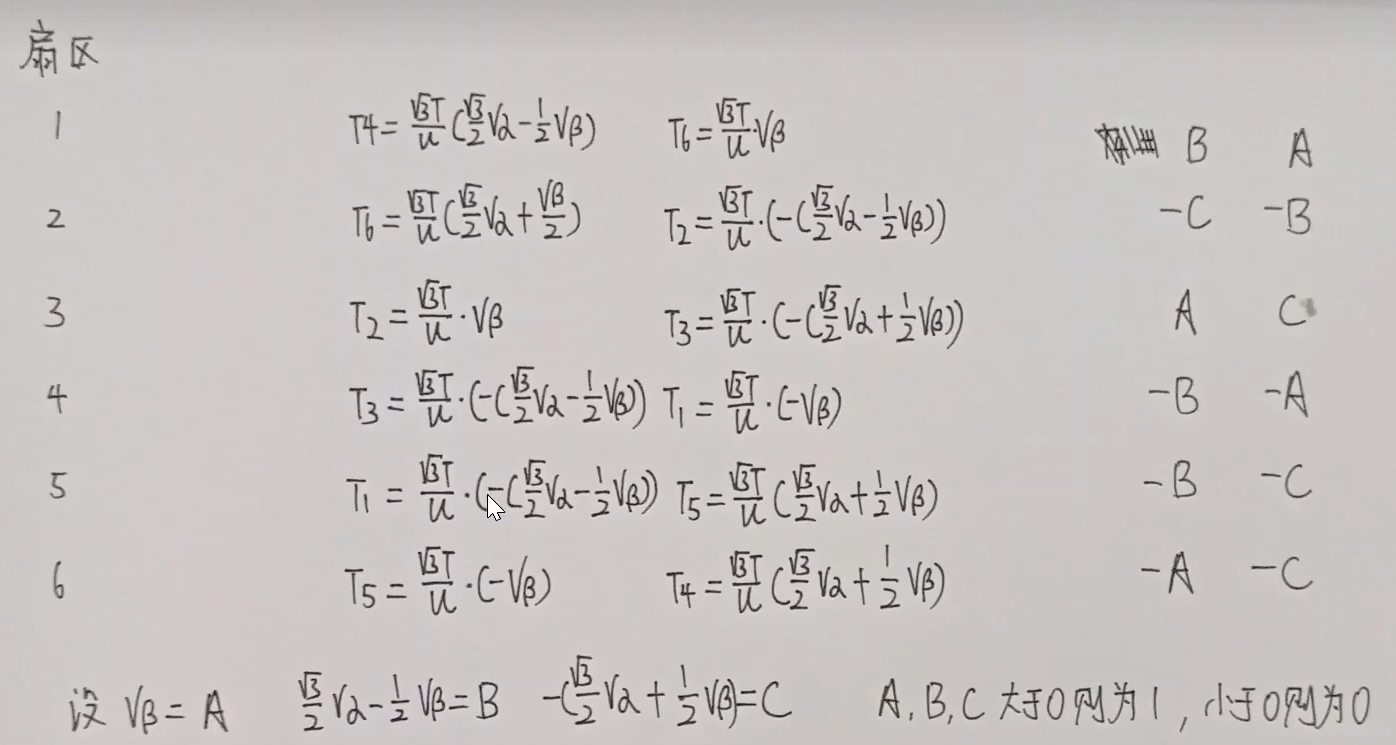 扇区
1 T4=√3T/U(√3/2Vα-1/2Vβ) T6=√3T/U·Vβ B A
2 T6=√3T/U(√3/2Vα+Vβ/2) T2=√3T/U·(-(√3/2Vα-1/2Vβ)) -C -B
3 T2=√3T/U·Vβ T3=√3T/U·(-(√3/2Vα+1/2Vβ)) A C
4 T3=√3T/U·(-(√3/2Vα-1/2Vβ)) T1=√3T/U·(-Vβ) -B -A
5 T1=√3T/U·(-(√3/2Vα-1/2Vβ)) T5=√3T/U(√3/2Vα+1/2Vβ) -B -C
6 T5=√3T/U·(-Vβ) T4=√3T/U(√3/2Vα+1/2Vβ) -A -C
设 Vβ=A √3/2Vα-1/2Vβ=B -(√3/2Vα+1/2Vβ)=C A,B,C大于0则为1,小于0则为0